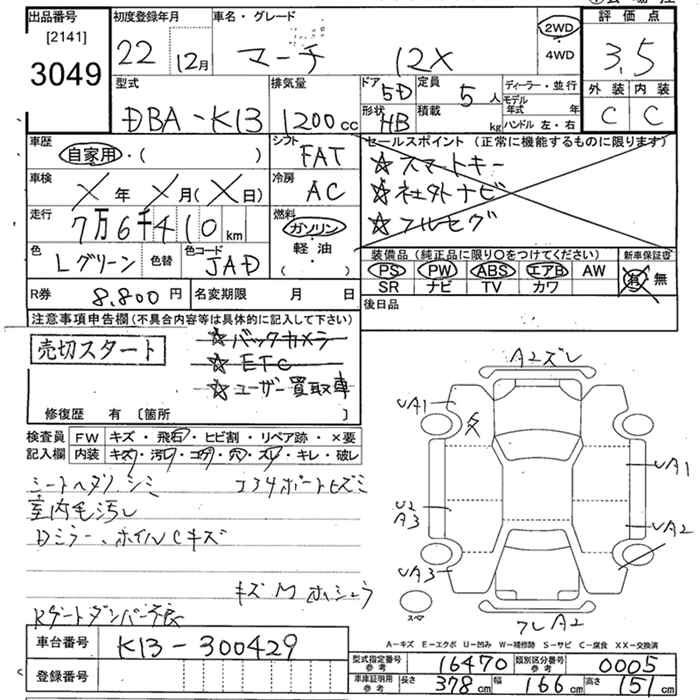 出品番号 初度登録年月 車名・グレード 評価点
[2141]
3049 22 12月 マーチ 12X 2WD 4WD 3.5
型式 排気量 ドア 5D 定員 5人 ディーラー・並行 外装 内装
DBA-K13 1200cc 形状 HB 積載 kg モデル年式 年 C C
ハンドル 左・右
車歴 シフト セールスポイント (正常に機能するものに限ります)
自家用・( ) FAT ☆スマートキー
車検 X年 X月(X日) 冷房 AC ☆社外ナビ
走行 7万6千410km 燃料 ガソリン ☆フルセグ
軽油
( )
色 Lグリーン 色替 色コード JAD 装備品 (純正品に限り○をつけてください) 新車保証書
PS PW ABS エアB AW 有・無
SR ナビ TV カワ
R券 8.800円 名変期限 月 日 後日品
注意事項申告欄(不具合内容等は具体的に記入して下さい)
売切スタート ☆バックカメラ
☆ETC
☆ユーザー買取車
修復歴 有 〔箇所 〕
検査員 FW キズ・飛石・ヒビ割・リペア跡・×要
記入欄 内装 キズ・汚レ・コゲ・穴・ズレ・キレ・破レ
シートヘタリ、シミ コアサポートヒズミ
室内毛汚レ
Dミラー、ホイルCキズ
キズM ホシュウ
Rゲートダンパー不良
A2ズレ
UA1
UA1
U2
A3
UA2
UA3
スペア
フレA2
A-キズ E-エクボ U-凹み W-補修跡 S-サビ C-腐食 XX-交換済
車台番号 K13-300429
登録番号
型式指定番号 参考 16470 類別区分番号 参考 0005
車庫証明用 参考 長さ 378cm 幅 166cm 高さ 151cm